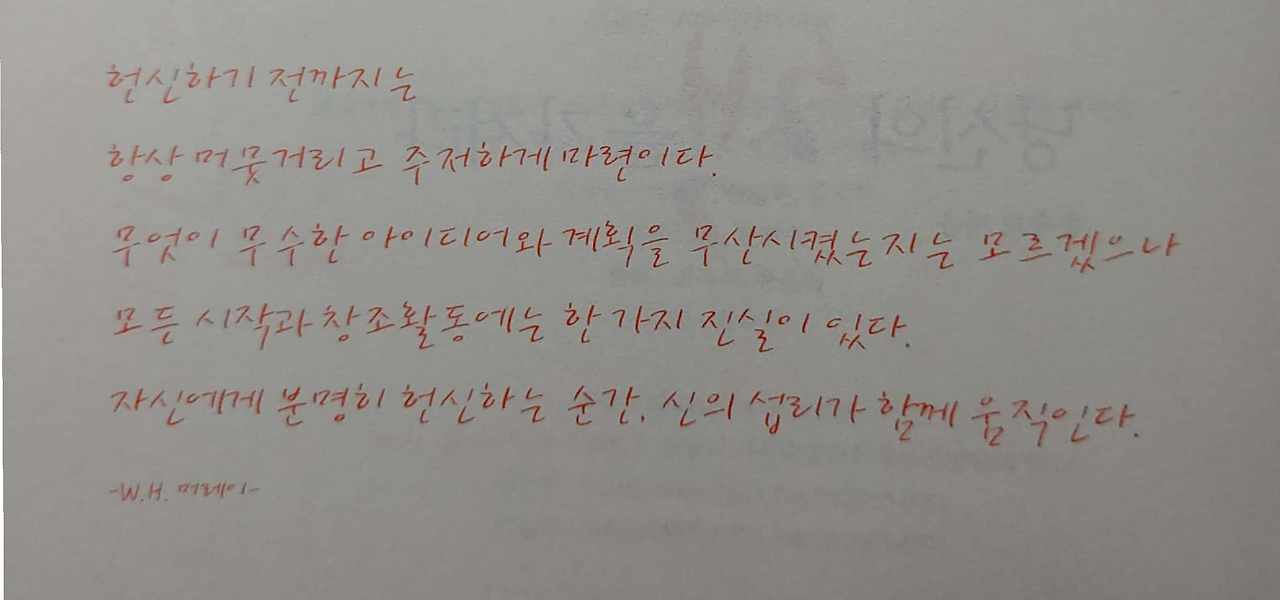 헌신하기 전까지는
항상 머뭇거리고 주저하게 마련이다.
무엇이 무수한 아이디어와 계획을 무산시켰는지는 모르겠으나
모든 시작과 창조활동에는 한 가지 진실이 있다.
자신에게 분명히 헌신하는 순간, 신의 섭리가 함께 움직인다.
-W.H. 머레이-